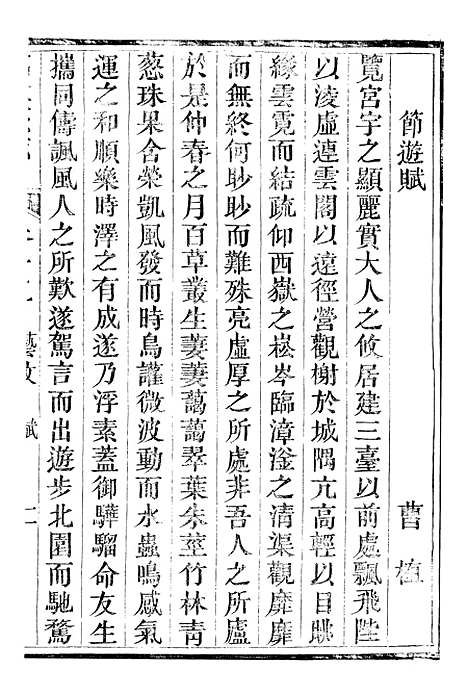 節遊賦 曹植
覽宮宇之顯麗實大人之攸居建三臺以前處飄飛陛
以淩虛連雲閣以遠徑營觀榭於城隅亢高輕以目眺
緣雲霓而結疏仰西嶽之崧岑臨漳滏之清渠觀靡靡
而無終何眇眇而難殊亮虛厚之所處非吾人之所廬
於是仲春之月百草叢生萋萋藹藹翠葉朱莖竹林青
蔥珠果含榮凱風發而時鳥讙微波動而水蟲鳴感氣
運之和順樂時澤之有成遂乃浮素蓋御驊騮命友生
攜同儔諷風人之所歎遂駕言而出遊步北園而馳騖
藝文 賦 二